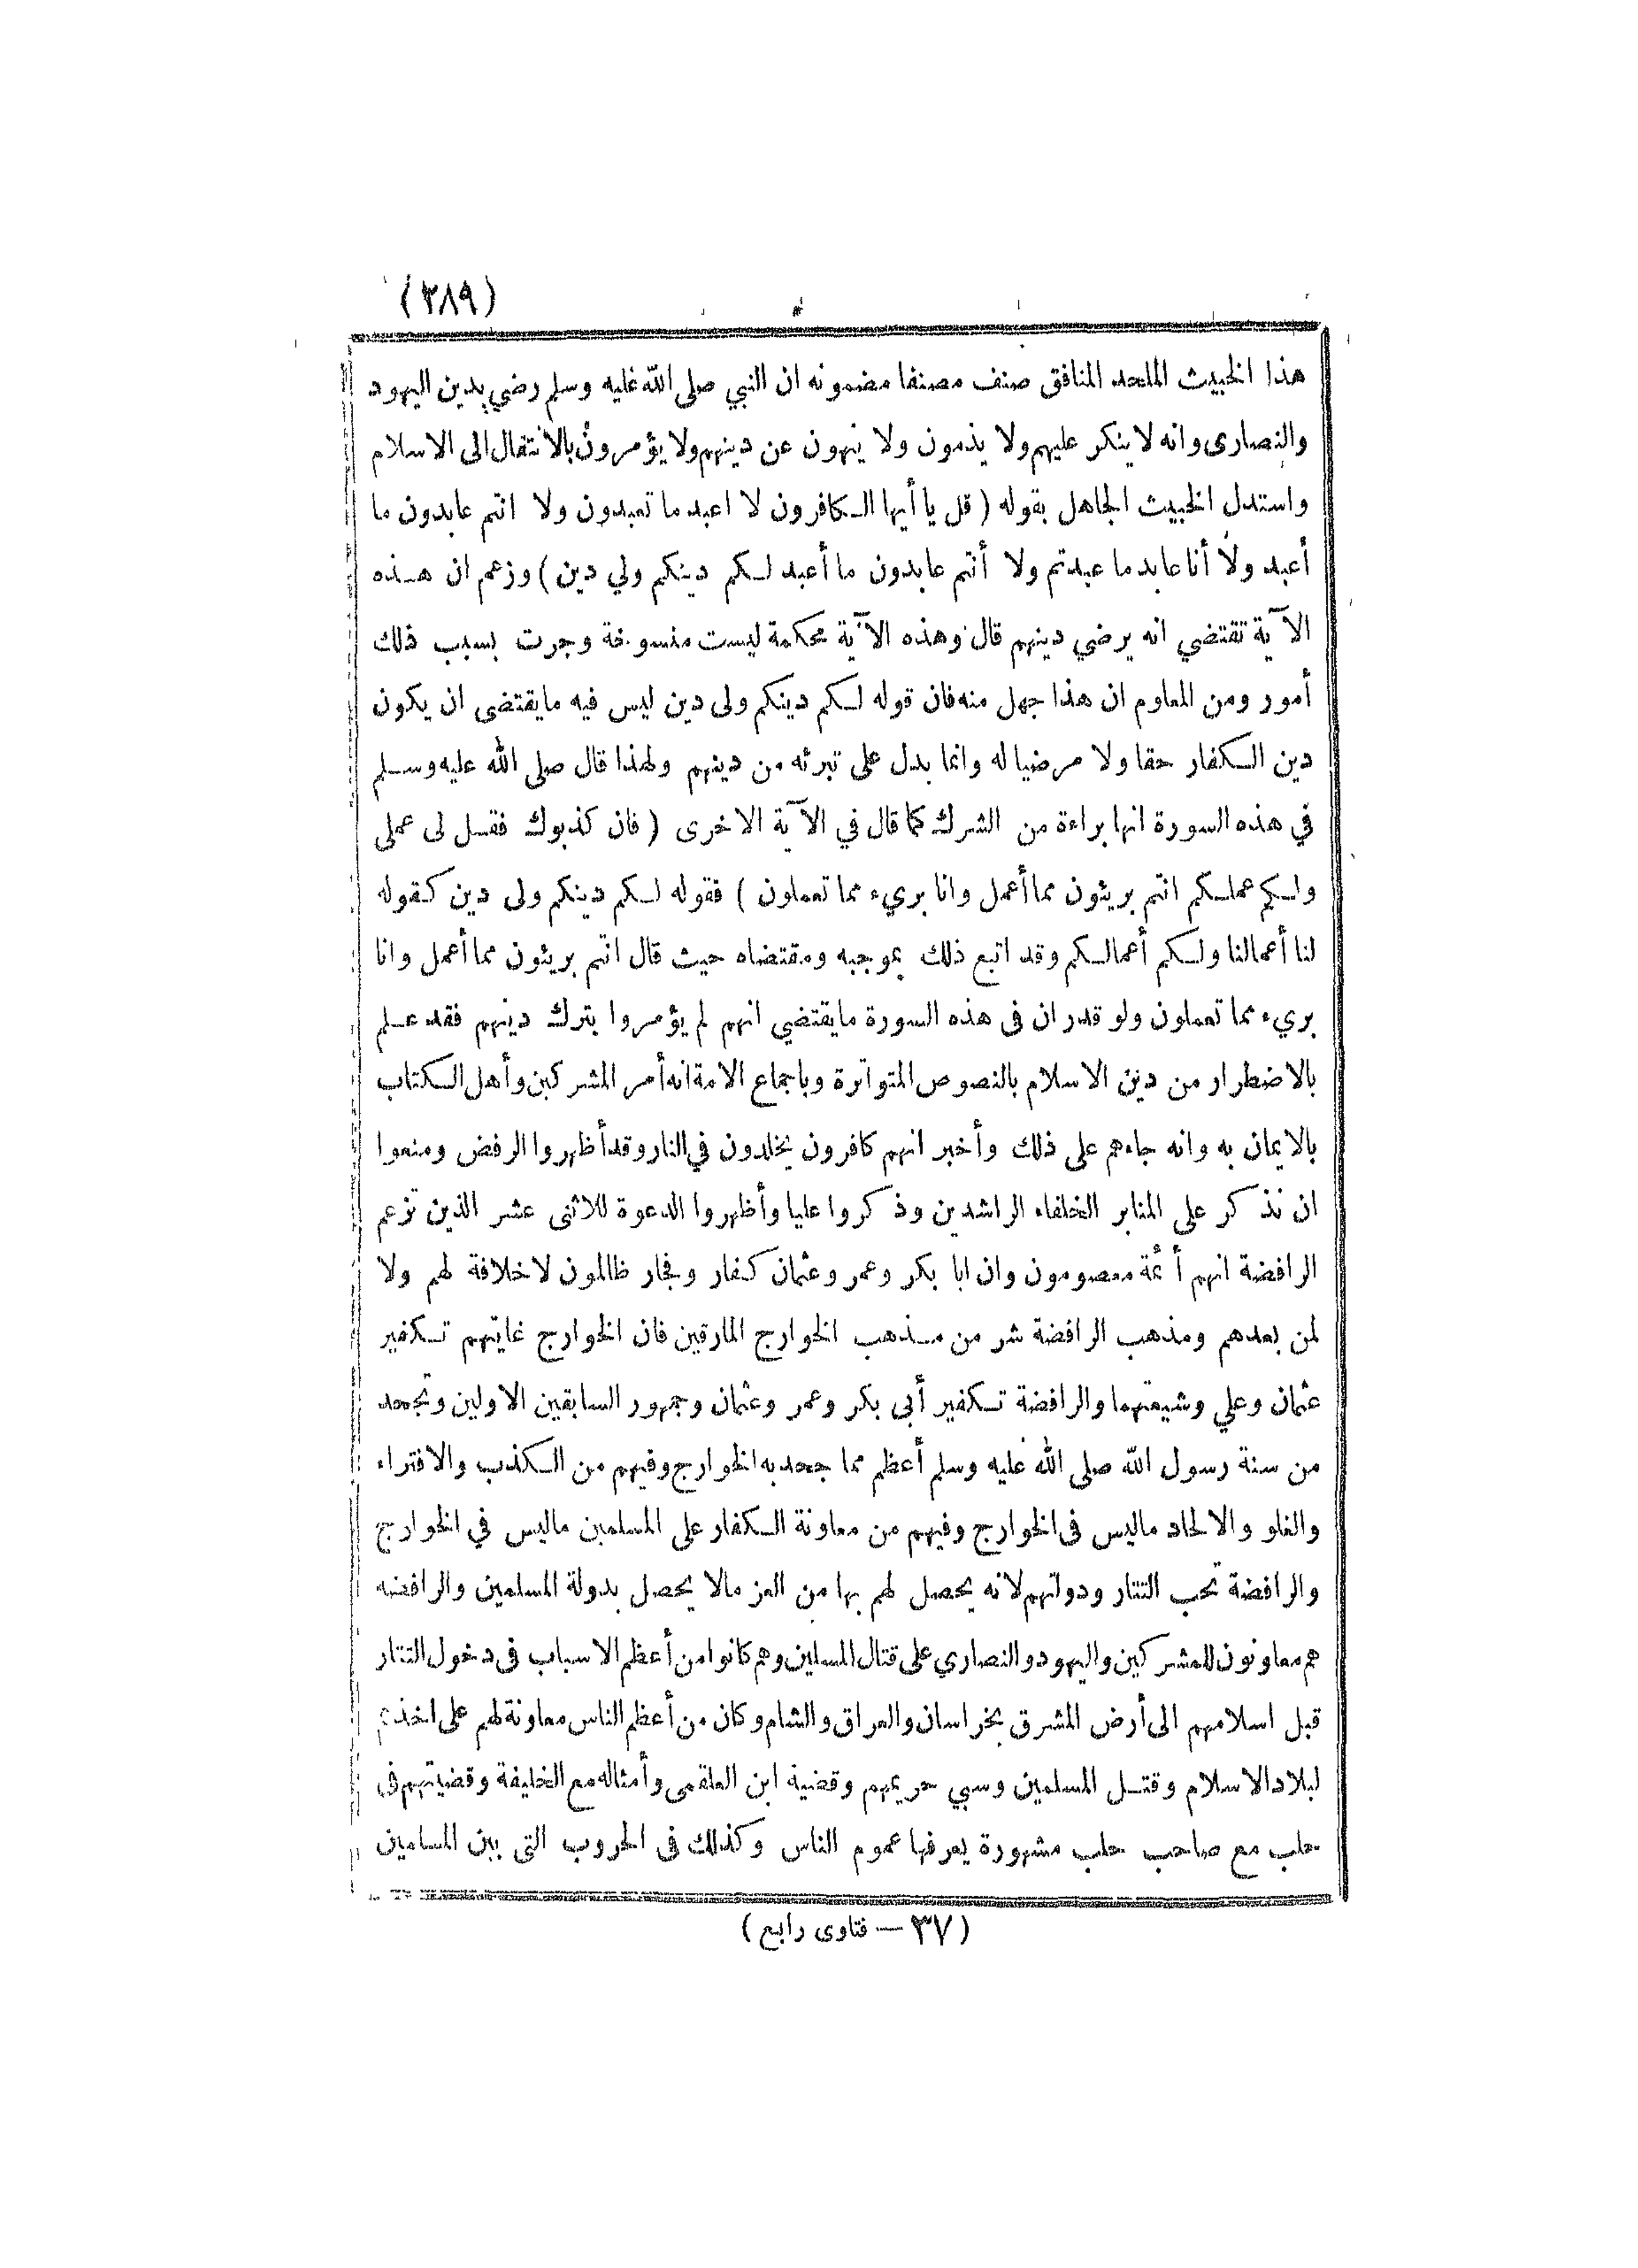 (٢٨٩)
هذا الخبيث الملحد المنافق صنف مصنفا مضمونه ان النبي صلى الله عليه وسلم رضي بدين اليهود
والنصارى وانه لا ينكر عليهم ولا يذمون ولا ينهون عن دينهم ولا يؤمرون بالانتقال الى الاسلام
واستدل الخبيث الجاهل بقوله ( قل يا أيها الكافرون لا اعبد ما تعبدون ولا انتم عابدون ما
أعبد ولا أنا عابد ما عبدتم ولا أنتم عابدون ما أعبد لكم دينكم ولي دين ) وزعم ان هذه
الآية تقتضي انه يرضي دينهم قال وهذه الآية محكمة ليست منسوخة وجرت بسبب ذلك
أمور ومن المعلوم ان هذا جهل منه فان قوله لكم دينكم ولى دين ليس فيه ما يقتضى ان يكون
دين الكفار حقا ولا مرضيا له وانما يدل على تبرئه من دينهم ولهذا قال صلى الله عليه وسلم
في هذه السورة انها براءة من الشرك كما قال في الآية الاخرى ( فان كذبوك فقل لى عملى
ولكم عملكم انتم بريئون مما أعمل وانا بريء مما تعملون ) فقوله لكم دينكم ولى دين كقوله
لنا أعمالنا ولكم أعمالكم وقد اتبع ذلك بموجبه ومقتضاه حيث قال انتم بريئون مما أعمل وانا
بريء مما تعملون ولو قدر ان فى هذه السورة ما يقتضي انهم لم يؤمروا بترك دينهم فقد علم
بالاضطرار من دين الاسلام بالنصوص المتواترة وباجماع الامة انه أمر المشركين وأهل الكتاب
بالايمان به وانه جاءهم على ذلك وأخبر انهم كافرون يخلدون في النار وقد أظهروا الرفض ومنعوا
ان نذكر على المنابر الخلفاء الراشدين وذكروا عليا وأظهروا الدعوة للاثنى عشر الذين تزعم
الرافضة انهم أئمة معصومون وان ابا بكر وعمر وعثمان كفار وفجار ظالمون لا خلافة لهم ولا
لمن بعدهم ومذهب الرافضة شر من مذهب الخوارج المارقين فان الخوارج غايتهم تكفير
عثمان وعلي وشيعتهما والرافضة تكفير أبى بكر وعمر وعثمان وجمهور السابقين الاولين وتجحد
من سنة رسول الله صلى الله عليه وسلم أعظم مما جحد به الخوارج وفيهم من الكذب والافتراء
والغلو والالحاد ما ليس فى الخوارج وفيهم من معاونة الكفار على المسلمين ما ليس في الخوارج
والرافضة تحب التتار ودولتهم لانه يحصل لهم بها من العز مالا يحصل بدولة المسلمين والرافضة
هم معاونون للمشركين واليهود والنصاري على قتال المسلمين وهم كانوا من أعظم الاسباب فى دخول التتار
قبل اسلامهم الى أرض المشرق بخراسان والعراق والشام وكان من أعظم الناس معاونة لهم على اخذهم
لبلاد الاسلام وقتل المسلمين وسبي حريمهم وقضية ابن العلقمى وأمثاله مع الخليفة وقضيتهم فى
حلب مع صاحب حلب مشهورة يعرفها عموم الناس وكذلك فى الحروب التى بين المسلمين
(٣٧ — فتاوى رابع)